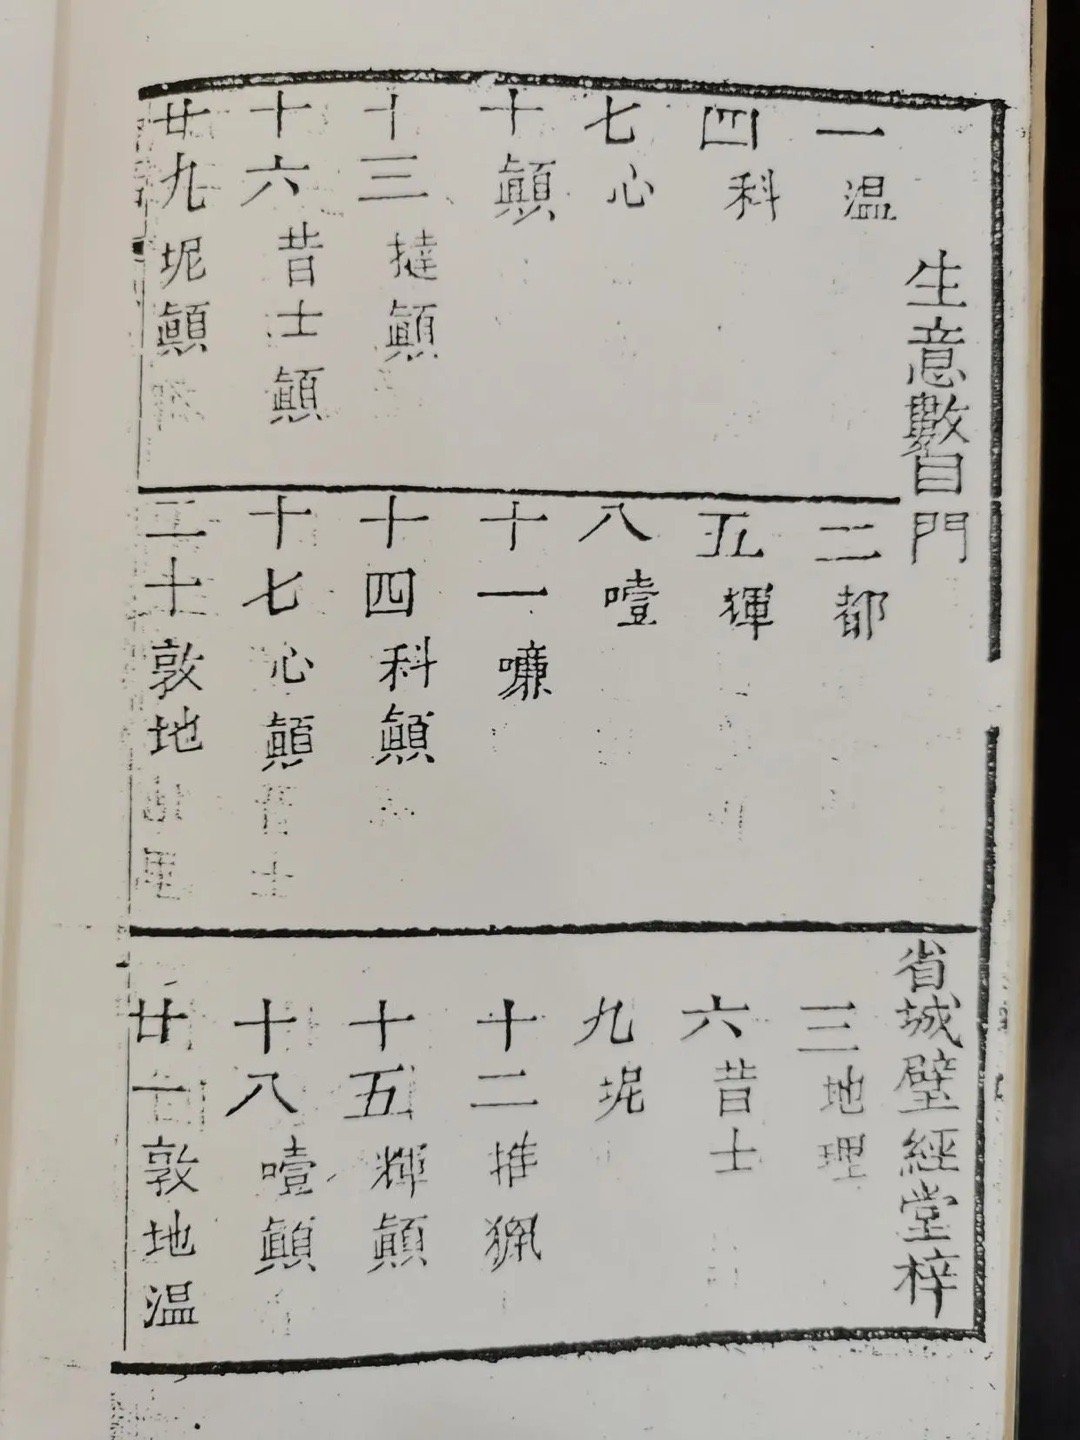 生意數目門
省城璧經堂梓
一温
二都
三地理
四科
五揮
六昔士
七心
八噎
九坭
十顛
十一㘓
十二推
十三撻顛
十四科顛
十五輝顛
十六昔士顛
十七心顛
十八噎顛
廿九坭顛
二十敦地
廿一敦地温